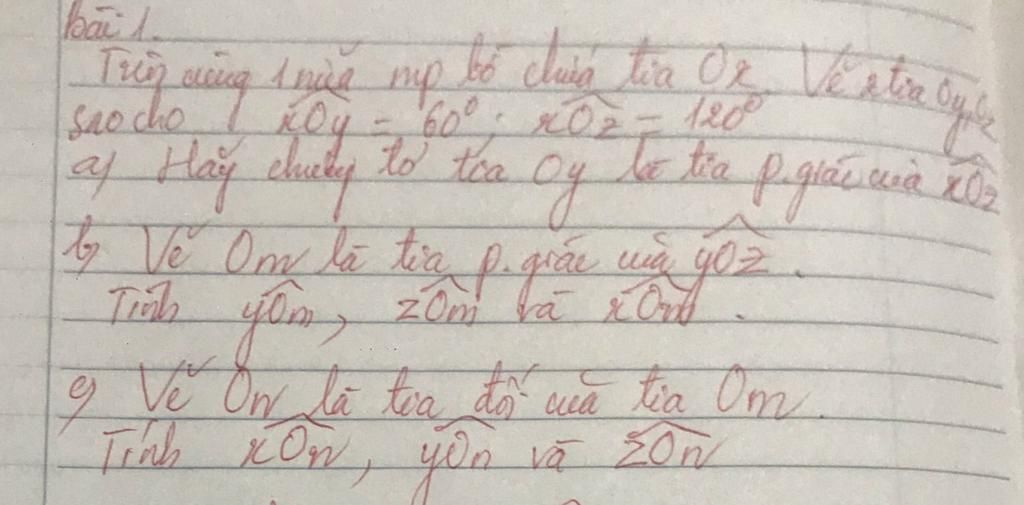 bài 1.
Trên cùng 1 nửa mp bờ chứa tia Ox. Vẽ 2 tia Oy, Oz
sao cho xOy = 60°; xOz = 120°
a) Hãy chứng tỏ tia Oy là tia p.giác của xOz
b) Vẽ Om là tia p.giác của yOz.
Tính yOm, zOm và xOm.
c) Vẽ On là tia đối của tia Om.
Tính xOn, yOn và zOn